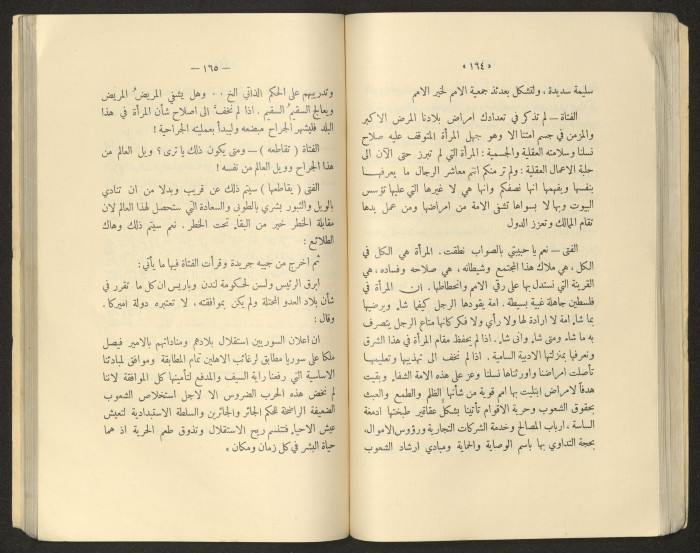 «١٦٤»
سليمة سديدة ، ولتشكل بعدئذ جمعية الامم لخير الامم
الفتاة — لم تذكر في تعدادك امراض بلادنا المرض الاكبر
والمزمن في جسم امتنا الا وهو جهل المرأة المتوقف عليه صلاح
نسلنا وسلامته العقلية والجسمية : المرأة التي لم تبرز حتى الآن الى
حلبة الاعمال العقلية : ولم تر منكم انتم معاشر الرجال ما يعرفها
بنفسها ويفهمها انها نصفكم وانها هي لا غيرها التي عليها تؤسس
البيوت وبها لا بسواها تشفى الامة من امراضها ومن عمل يدها
تقام الممالك وتعزز الدول
الفتى — نعم يا حبيبتي بالصواب نطقت . المرأة هي الكل في
الكل ، هي ملاك هذا المجتمع وشيطانه ، هي صلاحه وفساده ، هي
القرينة التي نستدل بها على رقي الامم وانحطاطها . ان المرأة في
فلسطين جاهلة غبية بسيطة . امة يقودها الرجل كيفما شاء ويرضيها
بما شاء امة لا ارادة لها ولا رأي ولا فكر كانها متاع الرجل يتصرف
به ما شاء ومتى شاء وانى شاء . اذا لم يحفظ مقام المرأة في هذا الشرق
ونعرفها بمنزلتها الادبية السامية . اذا لم نخف الى تهذيبها وتعليمها
تأصلت امراضنا واورثناها نسلنا وعز على هذه الامة الشفاء وبقيت
هدفاً لامراض ابتليت بها امم قوية من شأنها الظلم والطمع والعبث
بحقوق الشعوب وحرية الاقوام تأتينا بشكل عقاقير طبختها ادمغة
الساسة ، ارباب المصالح وخدمة الشركات التجارية ورؤوس الاموال،
بحجة التداوي بها باسم الوصاية والحماية ومبادي ارشاد الشعوب
— ١٦٥ —
وتدريبهم على الحكم الذاتي الخ . . وهل يشفي المريضُ المريض
ويعالج السقيمُ السقيم . اذا لم نخفَّ الى اصلاح شأن المرأة في هذا
البلد فليشهر الجراح مبضعه وليبدأ بعمليته الجراحية !
الفتاة ( تقاطعه ) — ومتى يكون ذلك يا ترى ؟ ويل العالم من
هذا الجراح وويل العالم من نفسه !
الفتى ( يقاطعها ) سيتم ذلك عن قريب وبدلا من ان تنادي
بالويل والثبور بشري بالطوبى والسعادة التي ستحصل لهذا العالم لان
مقابلة الخطر خير من البقاء تحت الخطر . نعم سيتم ذلك وهاك
الطلائع :
ثم اخرج من جيبه جريدة وقرأت الفتاة فيها ما يأتي :
ابرق الرئيس ولسن لحكومة لندن وباريس ان كل ما تقرر في
شأن بلاد العدو المحتلة ولم يكن بموافقته ، لا تعتبره دولة اميركا .
وقال :
ان اعلان السوريين استقلال بلادهم ومناداتهم بالامير فيصل
ملكا على سوريا مطابق لرغائب الاهلين تمام المطابقة وموافق لمبادئنا
الاساسية التي رفعنا راية السيف والمدفع لتأمينها كل الموافقة لاننا
لم نخض هذه الحرب الضروس الا لاجل استخلاص الشعوب
الضعيفة الراضخة للحكم الجائر والجائرين والسلطة الاستبدادية لتعيش
عيش الاحياء فتتنسم ريح الاستقلال وتذوق طعم الحرية اذ هما
حياة البشر في كل زمان ومكان .